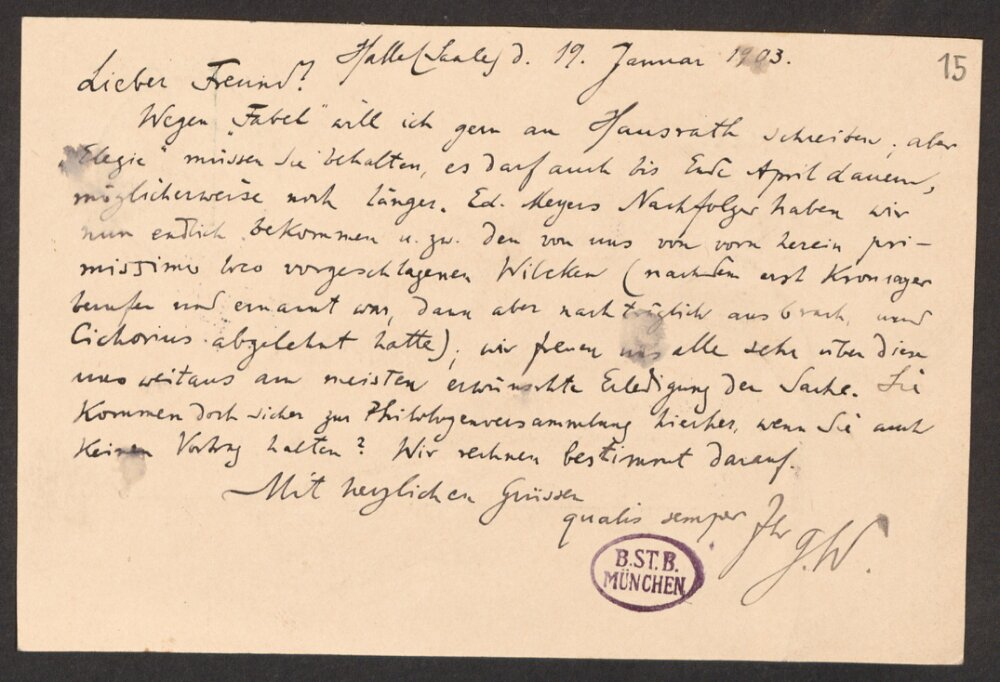 15
Halle (Saale) d. 19. Januar 1903.
Lieber Freund!
Wegen „Fabel“ will ich gern an Hausrath schreiben; aber
„Elegie“ müssen Sie behalten, es darf auch bis Ende April dauern,
möglicherweise noch länger. Ed. Meyers Nachfolger haben wir
nun endlich bekommen u. zw. den von uns von vorn herein pri-
missimo loco vorgeschlagenen Wilcken (nachdem erst Kromayer
berufen und ernannt war, dann aber nachträglich ausbrach, und
Cichorius abgelehnt hatte); wir freuen uns alle sehr über diese
uns weitaus am meisten erwünschte Erledigung der Sache. Sie
kommen doch sicher zur Philologenversammlung hierher, wenn Sie auch
keinen Vortrag halten? Wir rechnen bestimmt darauf.
Mit herzlichen Grüssen
qualis semper Ihr G.W.
B.ST.B.
MÜNCHEN